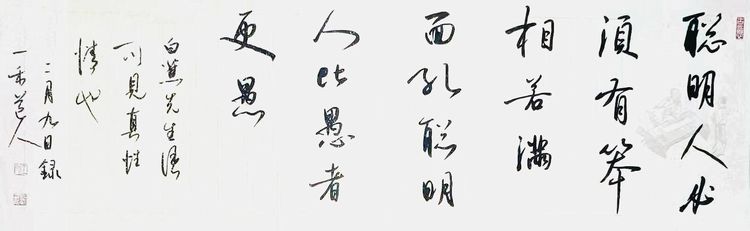 聪明人必
须有笨
相若满
面孔聪明
人比愚者
更愚
白蕉先生语
可见真性
情也
二月九日録
一禾道人